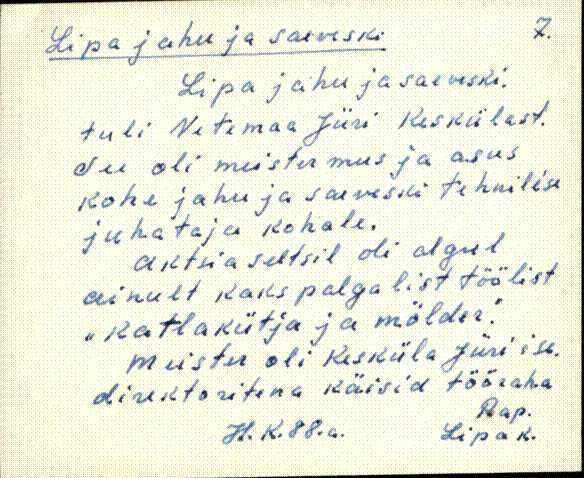 Lipa jahu ja saeveski 7.
Lipa jahu ja saeveski.
tuli Vetemaa Jüri Keskülast.
See oli meistermus ja asus
kohe jahu ja saeveski tehnilise
juhataja kohale.
Aktsiaseltsil oli algul
ainult kaks palgalist töölist
"Katlakütja ja mölder."
Meister oli Kesküla Jüri ise.
direktoritena käisid tööraha
Rap.
H. K. 88. a. Lipa k.